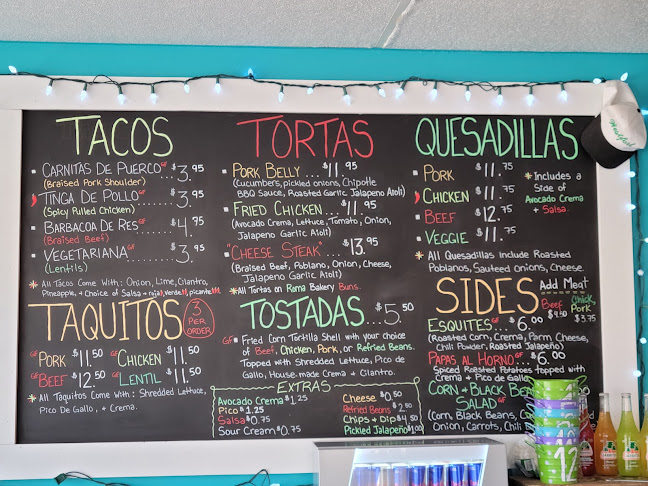 TACOS
• CARNITAS DE PUERCO GF ... $3.95
(Braised Pork Shoulder)
• TINGA DE POLLO GF ... $3.95
(Spicy Pulled Chicken)
• BARBACOA DE RES GF ... $4.75
(Braised Beef)
• VEGETARIANA GF ... $3.95
(Lentils)
* All Tacos Come With: Onion, Lime, Cilantro,
Pineapple, + Choice of Salsa
TAQUITOS 3 PER ORDER
GF PORK $11.50 GF CHICKEN $11.50
GF BEEF $12.50 GF LENTIL $11.50
* All Taquitos Come With: Shredded Lettuce,
Pico De Gallo, + Crema.
TORTAS
• PORK BELLY ... $11.95
(Cucumbers, pickled onions, Chipotle
BBQ Sauce, Roasted Garlic Jalapeno Aioli)
• FRIED CHICKEN ... $11.95
(Avocado Crema, Lettuce, Tomato, Onion,
Jalapeno Garlic Aioli)
• "CHEESE STEAK" ... $13.95
(Braised Beef, Poblano, Onion, Cheese,
Jalapeno Garlic Aioli)
* All Tortas on Roma Bakery Buns.
TOSTADAS ... $5.50
GF • Fried Corn Tortilla Shell with your choice
of Beef, Chicken, Pork, or Refried Beans.
Topped with Shredded Lettuce, Pico de
Gallo, House-made Crema + Cilantro.
EXTRAS
Avocado Crema $1.25
Pico $1.25
Salsa $0.75
Sour Cream $0.75
Cheese $0.50
Refried Beans $2.50
Chips + Dip $4.50
Pickled Jalapeño $1.00
QUESADILLAS
• PORK $11.75
• CHICKEN $11.75
• BEEF $12.75
• VEGGIE $11.75
* Includes a
Side of
Avocado Crema
+ Salsa.
* All Quesadillas Include Roasted
Poblanos, Sauteed onions, Cheese.
SIDES
Add Meat
Beef $4.50
Chick, Pork $3.75
ESQUITES GF $6.00
(Roasted Corn, Crema, Parm Cheese,
Chili Powder, Roasted Jalapeño)
PAPAS AL HORNO GF $6.00
Spiced Roasted Potatoes topped with
Crema + Pico de Gallo
CORN + BLACK BEAN
SALAD GF
(Corn, Black Beans,
Onion, Carrots,
12